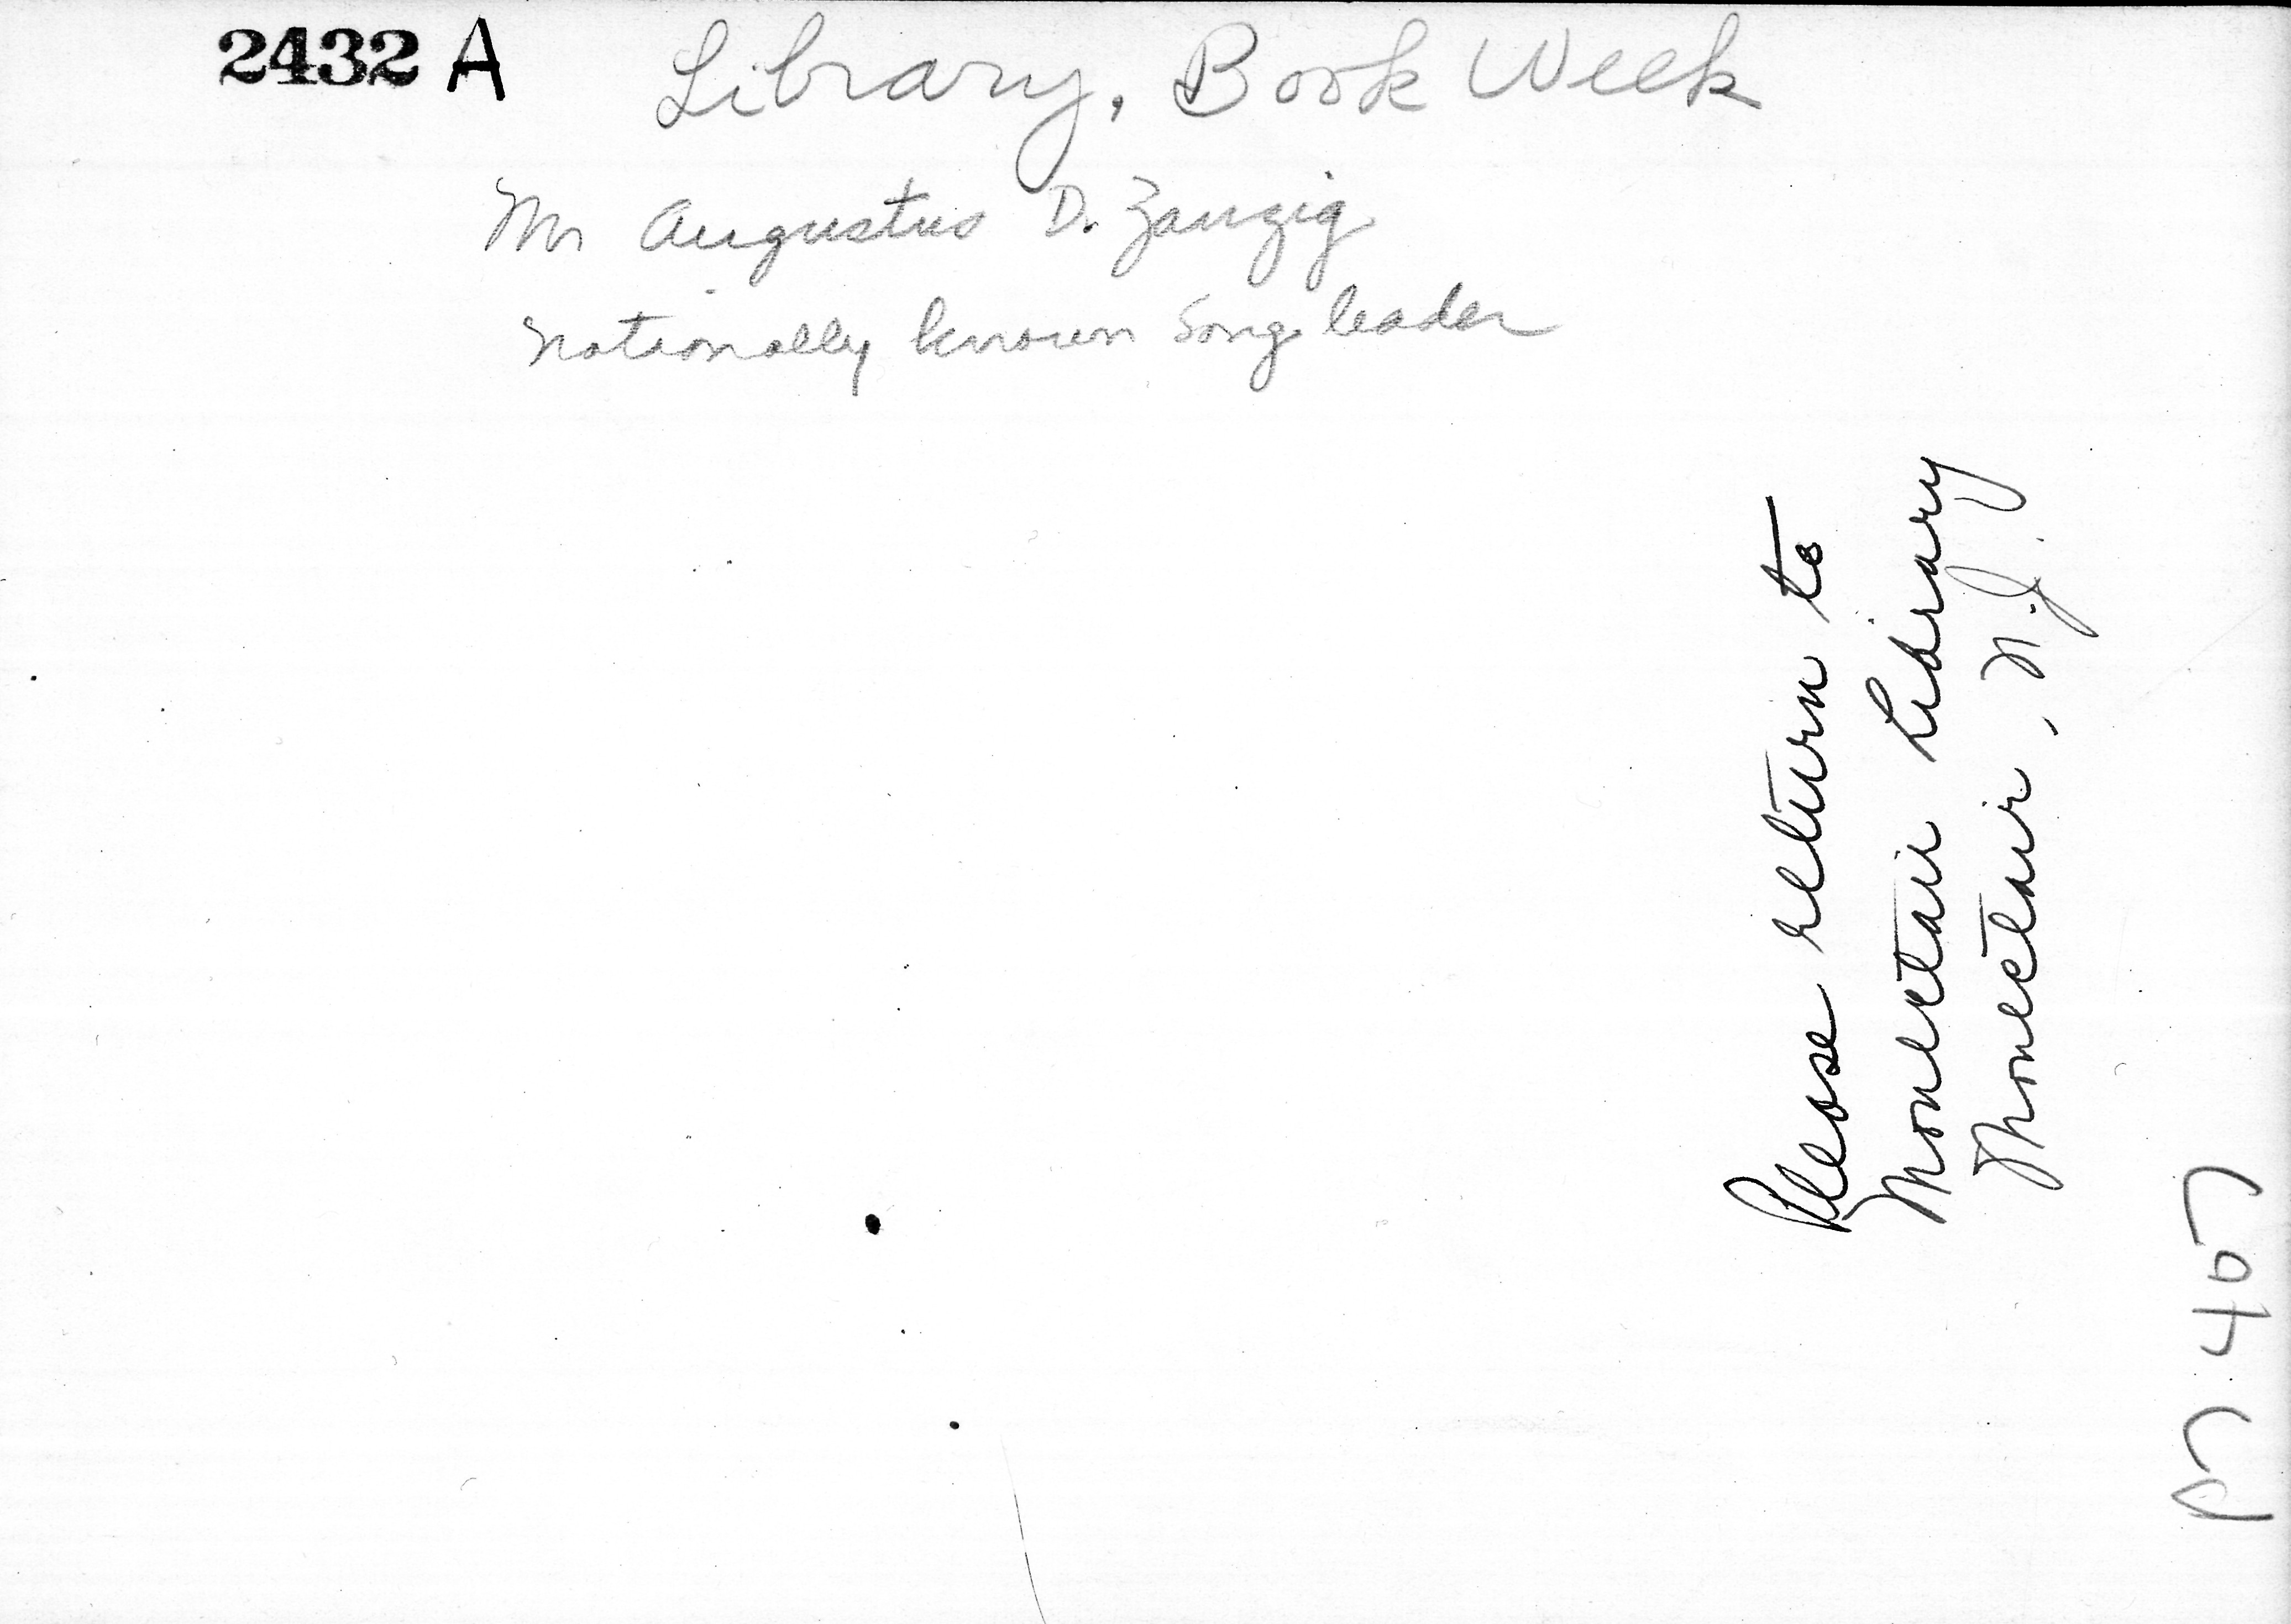 2432 A Library, Book Week
Mr Augustus D. Zanzig
Nationally known song leader
Please return to
Montclair Library
Montclair, N.J.